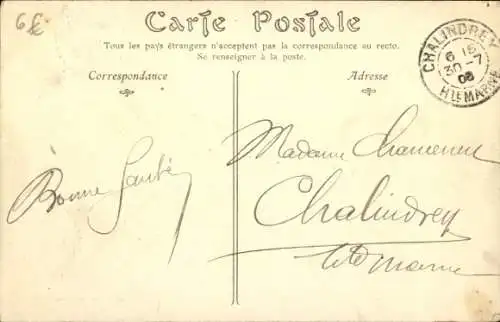 6€
Carte Postale
Tous les pays étrangers n'acceptent pas la correspondance au recto.
Se renseigner à la poste.
Correspondance
Adresse
CHALINDREY
6 15
30-7
08
HTE MARNE
Bonne Santé
Madame
Chalindrey
Hte Marne